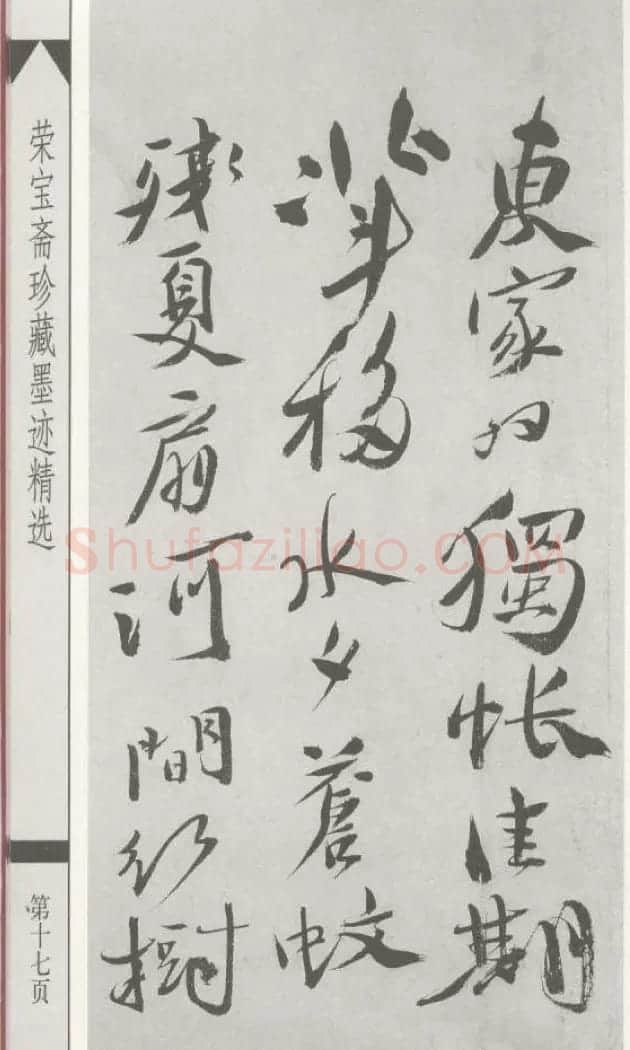 東家獨悵佳期
北斗移水夕蒼蚊
殘夏扇河間樹
荣宝斋珍藏墨迹精选
第十七页
Shufaziliao.COM